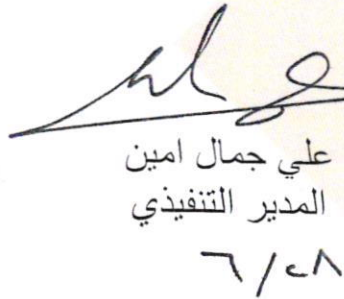 علي جمال امين
المدير التنفيذي
٦/٢٨